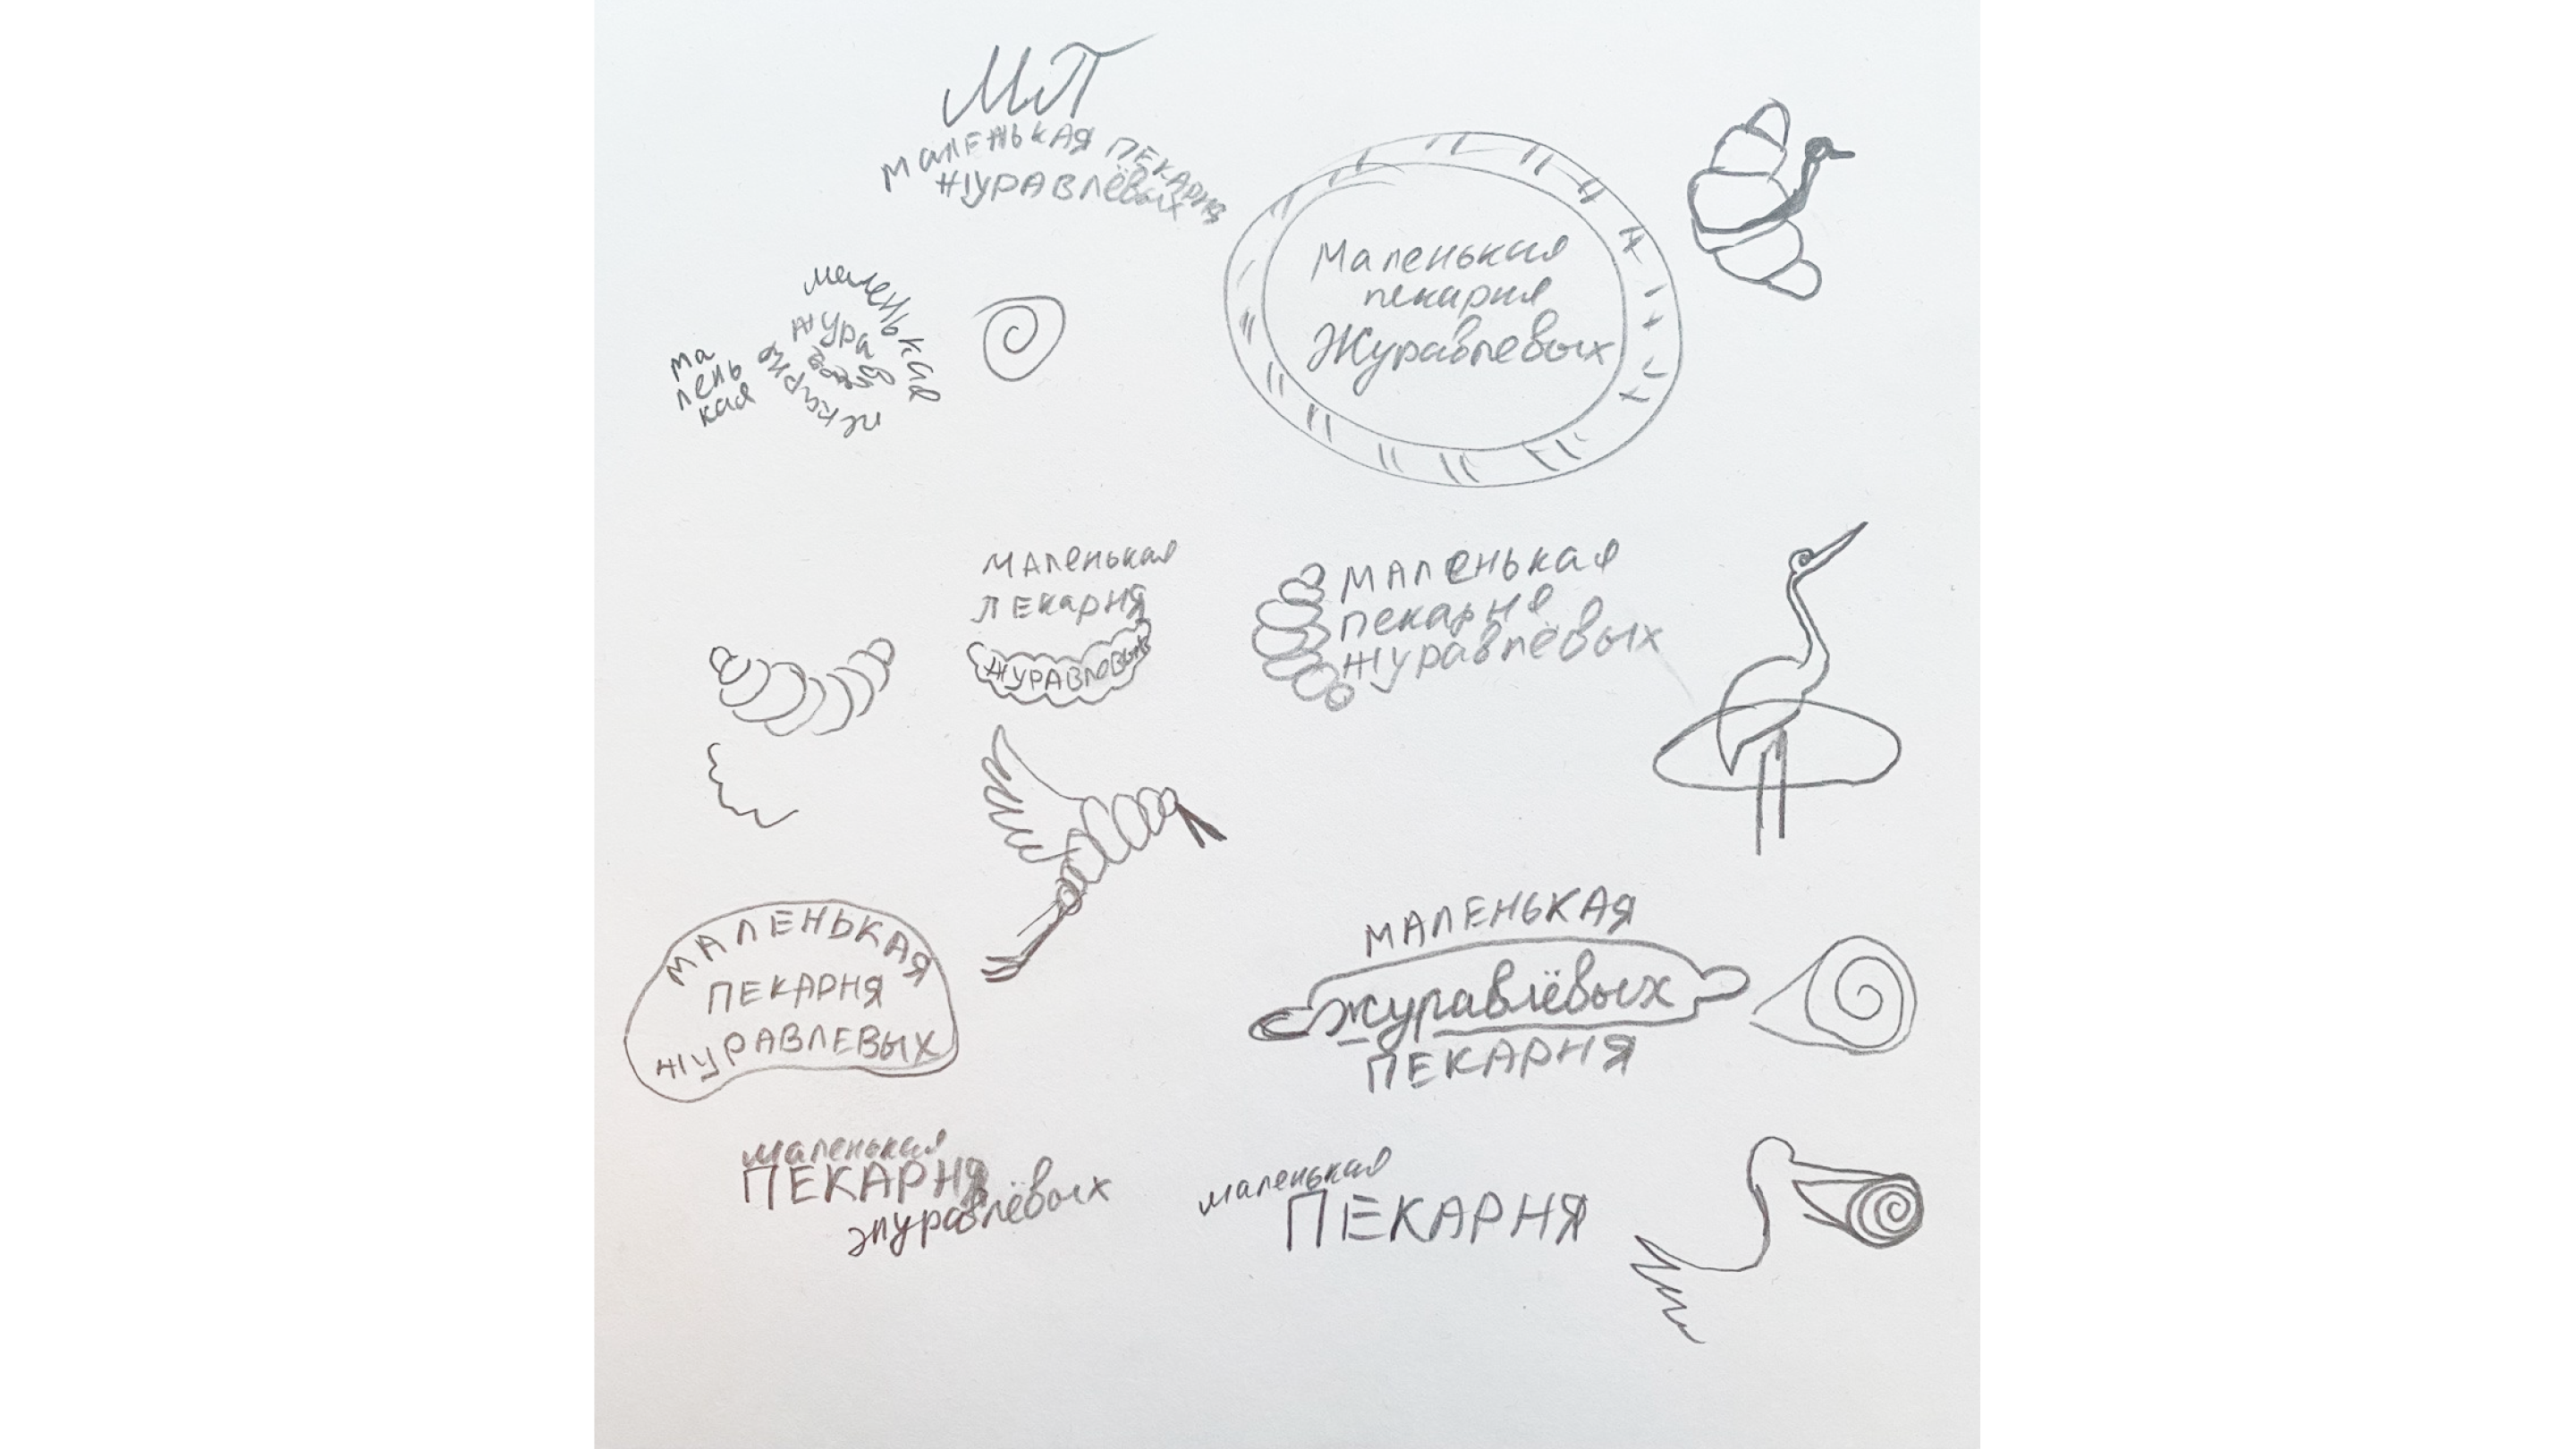 МП
МАЛЕНЬКАЯ ПЕКАРНЯ
ЖУРАВЛЁВЫХ
Маленькая
пекарня
Журавлевых
маленькая
пекарня
Жура
ма
лень
кая
МАЛЕНЬКАЯ
ПЕКАРНЯ
ЖУРАВЛЕВЫХ
МАЛЕНЬКАЯ
ПЕКАРНЯ
ЖУРАВЛЁВЫХ
МАЛЕНЬКАЯ
ПЕКАРНЯ
ЖУРАВЛЕВЫХ
МАЛЕНЬКАЯ
журавлёвых
ПЕКАРНЯ
маленькая
ПЕКАРНЯ
журавлёвых
маленькая
ПЕКАРНЯ